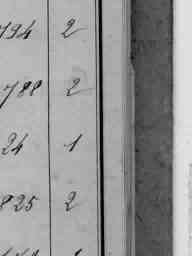 794 2
788 2
24 1
825 2